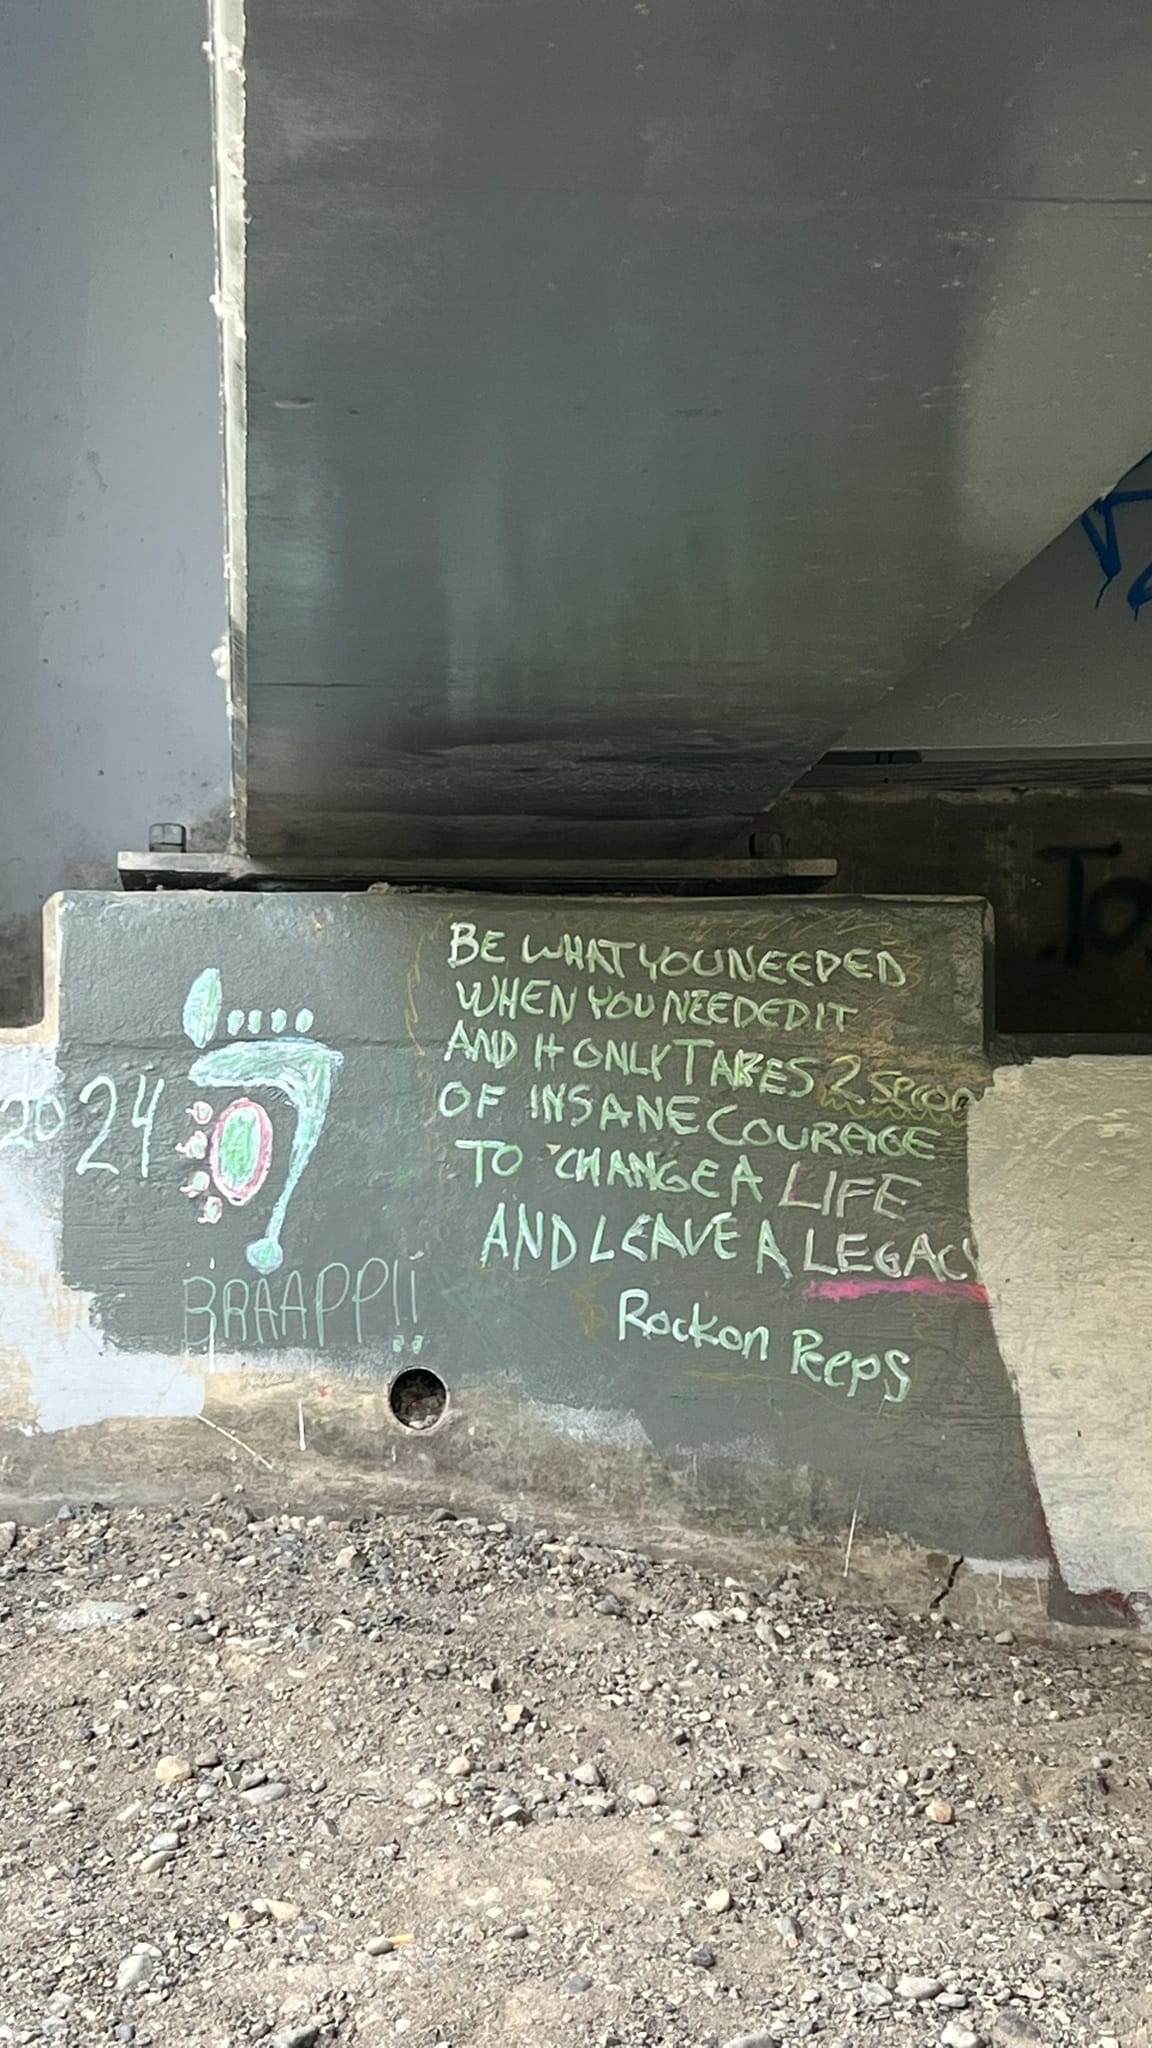 BE WHAT YOU NEEDED
WHEN YOU NEEDED IT
AND It ONLY TAKES 2 Secon
OF INSANE COURAGE
TO CHANGE A LIFE
AND LEAVE A LEGACY
Rock on Peeps
2024
BRAAPP!!
To